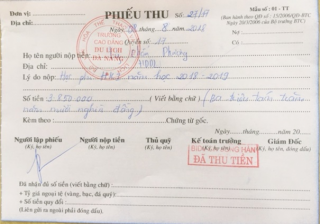 Đơn vị:
Địa chỉ:
PHIẾU THU
Số:
Mẫu số: 01 - TT
Ngày 08 tháng 8 năm 2018
Quyển số:
TRƯỜNG
CAO ĐẲNG
DU LỊCH
ĐÀ NẴNG
Họ tên người nộp tiền: Phương
Địa chỉ:
Lý do nộp: Học phí HKI năm học 2018-2019
Số tiền: 3.850.000 (Viết bằng chữ) (Ba triệu tám trăm
năm mươi nghìn đồng)
Kèm theo: Chứng từ gốc.
Ngày tháng năm 20
Người lập phiếu Người nộp tiền Thủ quỹ Kế toán trưởng Giám Đốc
(Ký, họ tên) (Ký, họ tên) (Ký, họ tên) (Ký, họ tên) (Ký, họ tên, đóng dấu)
ĐÃ THU TIỀN
Đã nhận đủ số tiền (viết bằng chữ)
+ Tỷ giá ngoại tệ (vàng, bạc, đá quý):
+ Số tiền quy đổi:
(Liên gửi ra ngoài phải đóng dấu).